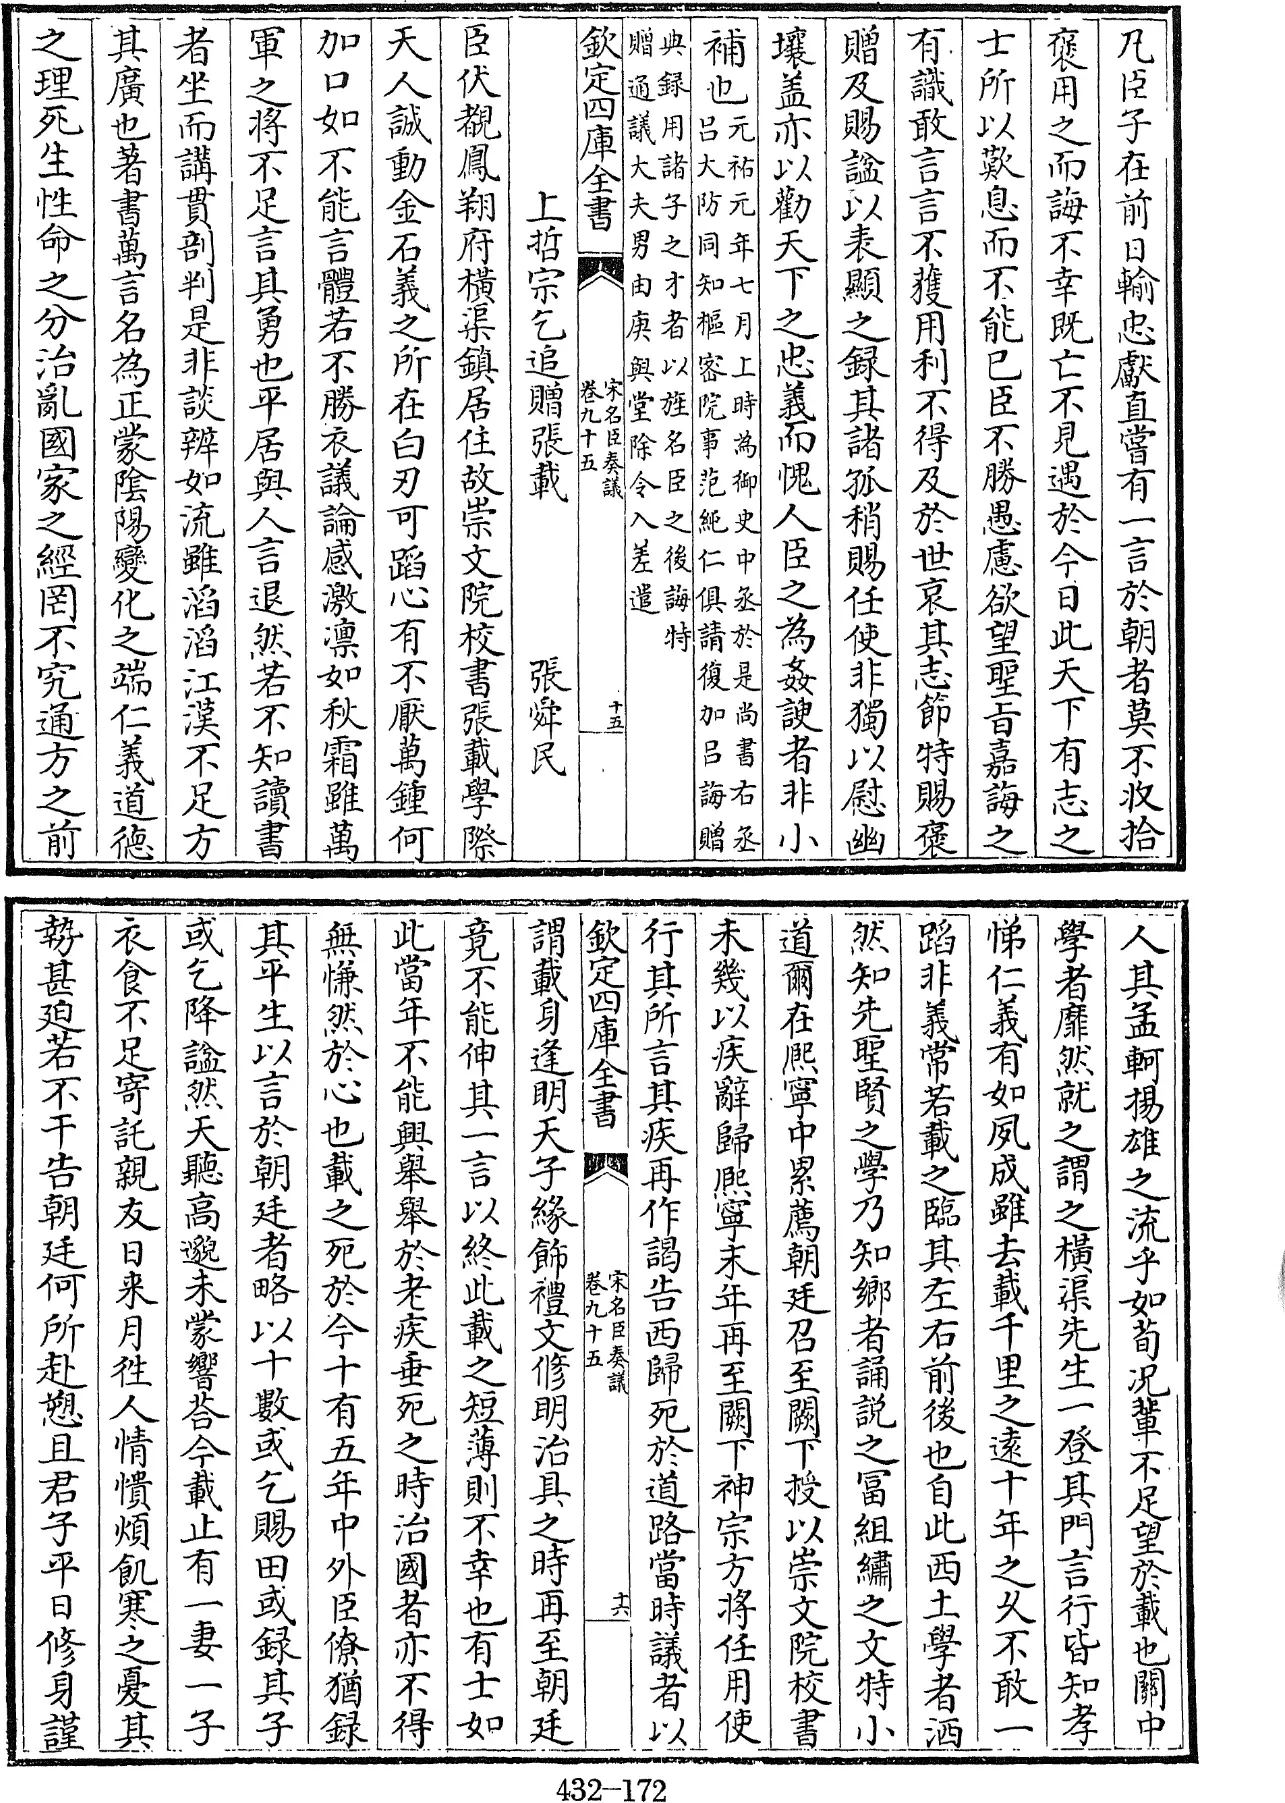 凡臣子在前日輸忠獻直嘗有一言於朝者莫不收拾
褒用之而誨不幸既亡不見遇於今日此天下有志之
士所以歎息而不能已臣不勝愚慮欲望聖旨嘉誨之
有識敢言言不獲用利不得及於世哀其志節特賜褒
贈及賜諡以表顯之録其諸孤稍賜任使非獨以慰幽
壤盖亦以勸天下之忠義而愧人臣之為姦諛者非小
補也
元祐元年七月上時為御史中丞於是尚書右丞
吕大防同知樞密院事范純仁俱請復加吕誨贈
典録用諸子之才者以旌名臣之後誨特
贈通議大夫男由庚與堂除令入差遣
欽定四庫全書
宋名臣奏議
卷九十五
十五
上哲宗乞追贈張載
張舜民
臣伏覩鳳翔府横渠鎮居住故崇文院校書張載學際
天人誠動金石義之所在白刃可蹈心有不厭萬鍾何
加口如不能言體若不勝衣議論感激凛如秋霜雖萬
軍之將不足言其勇也平居與人言退然若不知讀書
者坐而講貫剖判是非談辨如流雖滔滔江漢不足方
其廣也著書萬言名為正蒙陰陽變化之端仁義道徳
之理死生性命之分治亂國家之經罔不究通方之前
人其孟軻揚雄之流乎如荀况輩不足望於載也關中
學者靡然就之謂之横渠先生一登其門言行皆知孝
悌仁義有如夙成雖去載千里之遠十年之乆不敢一
蹈非義常若載之臨其左右前後也自此西土學者洒
然知先聖賢之學乃知鄉者誦説之冨組繡之文特小
道爾在熙寧中累薦朝廷召至闕下授以崇文院校書
未幾以疾辭歸熙寧末年再至闕下神宗方將任用使
行其所言其疾再作謁告西歸死於道路當時議者以
欽定四庫全書
宋名臣奏議
卷九十五
十六
謂載身逢明天子緣飾禮文修明治具之時再至朝廷
竟不能伸其一言以終此載之短薄則不幸也有士如
此當年不能興舉舉於老疾垂死之時治國者亦不得
無慊然於心也載之死於今十有五年中外臣僚猶録
其平生以言於朝廷者略以十數或乞賜田或録其子
或乞降諡然天聽高邈未蒙響荅今載止有一妻一子
衣食不足寄託親友日来月徃人情憒煩飢寒之憂其
勢甚廹若不干告朝廷何所赴愬且君子平日修身謹
432-172